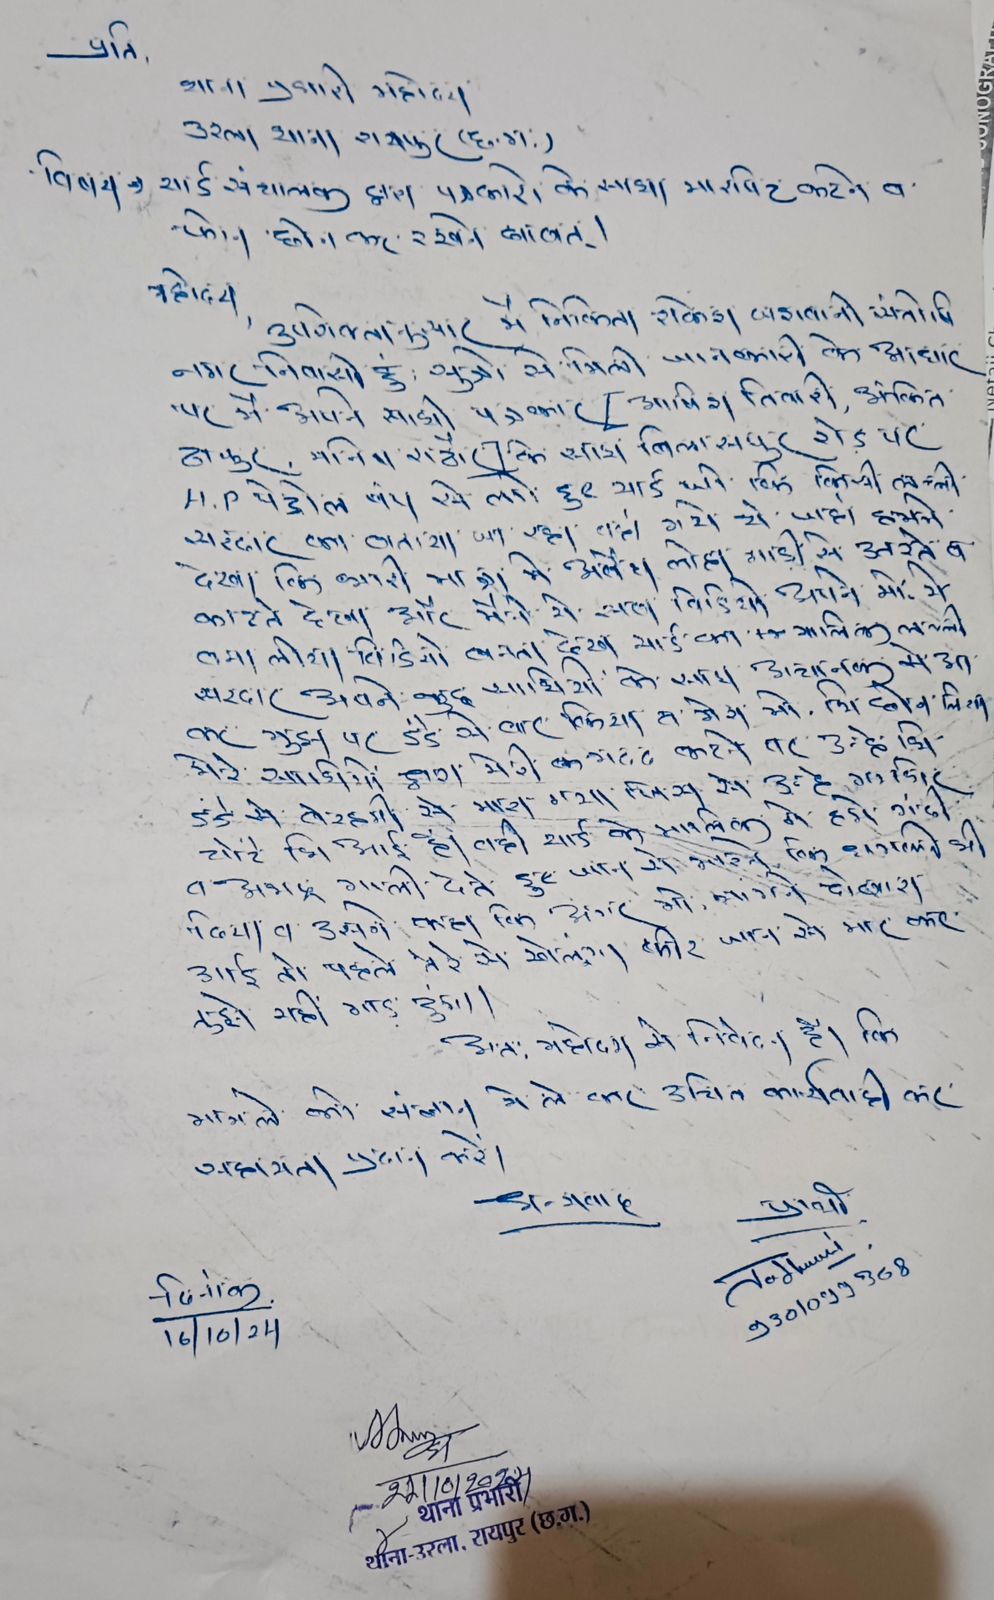 प्रति,
थाना प्रभारी महोदय
उरला थाना रायपुर (छ.ग.)
विषय → यार्ड संचालक द्वारा पत्रकारो के साथ मारपिट करने व
फोन छीन कर रखने बाबत्।
महोदय,
उपरोक्तानुसार मै निकिता राकेश जसवानी संतोषि
नगर निवासी हुं। सुत्रो से मिली जानकारी के आधार
पर मै अपने साथी पत्रकार [आशिश तिवारी, अंकित
ठाकुर, मनिष राठौर] के साथ बिलासपुर रोड़ पर
H.P पेट्रोल पंप से लगे हुए यार्ड जो कि किसी लवली
सरदार का बताया जा रहा वहां गये थे जहां हमने
देखा कि भारी मात्रा मे अवैध लोहा गाड़ी से उतरते व
काटते देखा और मैने ये सब विडियो अपने मो. मे
बना लीया विडियो बनता देख यार्ड का मालिक लवली
सरदार अपने कुछ साथियों के साथ अचानक से आ
कर मुझ पर डंडे से वार किया व मेरा मो. भि छीन लिया
मेरे साथियों द्वारा मेरी मदद करने पर उन्हे भि
डंडे से बेरहमी से मारा गया जिस से उन्हे गम्भिर
चोटे भि आई है। वही यार्ड के मालिक ने हमे गंदी
व अभद्र गाली देते हुए जान से मारने कि धमकी भी
दिया व उसने कहा कि अगर मो. मांगने दोबारा
आई तो पहले तेरे से खेलुंगा फीर जान से मार कर
तुझे यहीं गाड़ दुंगा।
अतः महोदय से निवेदन है। कि
मामले को संज्ञान मे ले कर उचित कार्यवाही कर
सहायता प्रदान करे।
धन्यवाद
प्रार्थी
दिनांक
16/10/24
22/10/2024
थाना प्रभारी
थाना-उरला, रायपुर (छ.ग.)